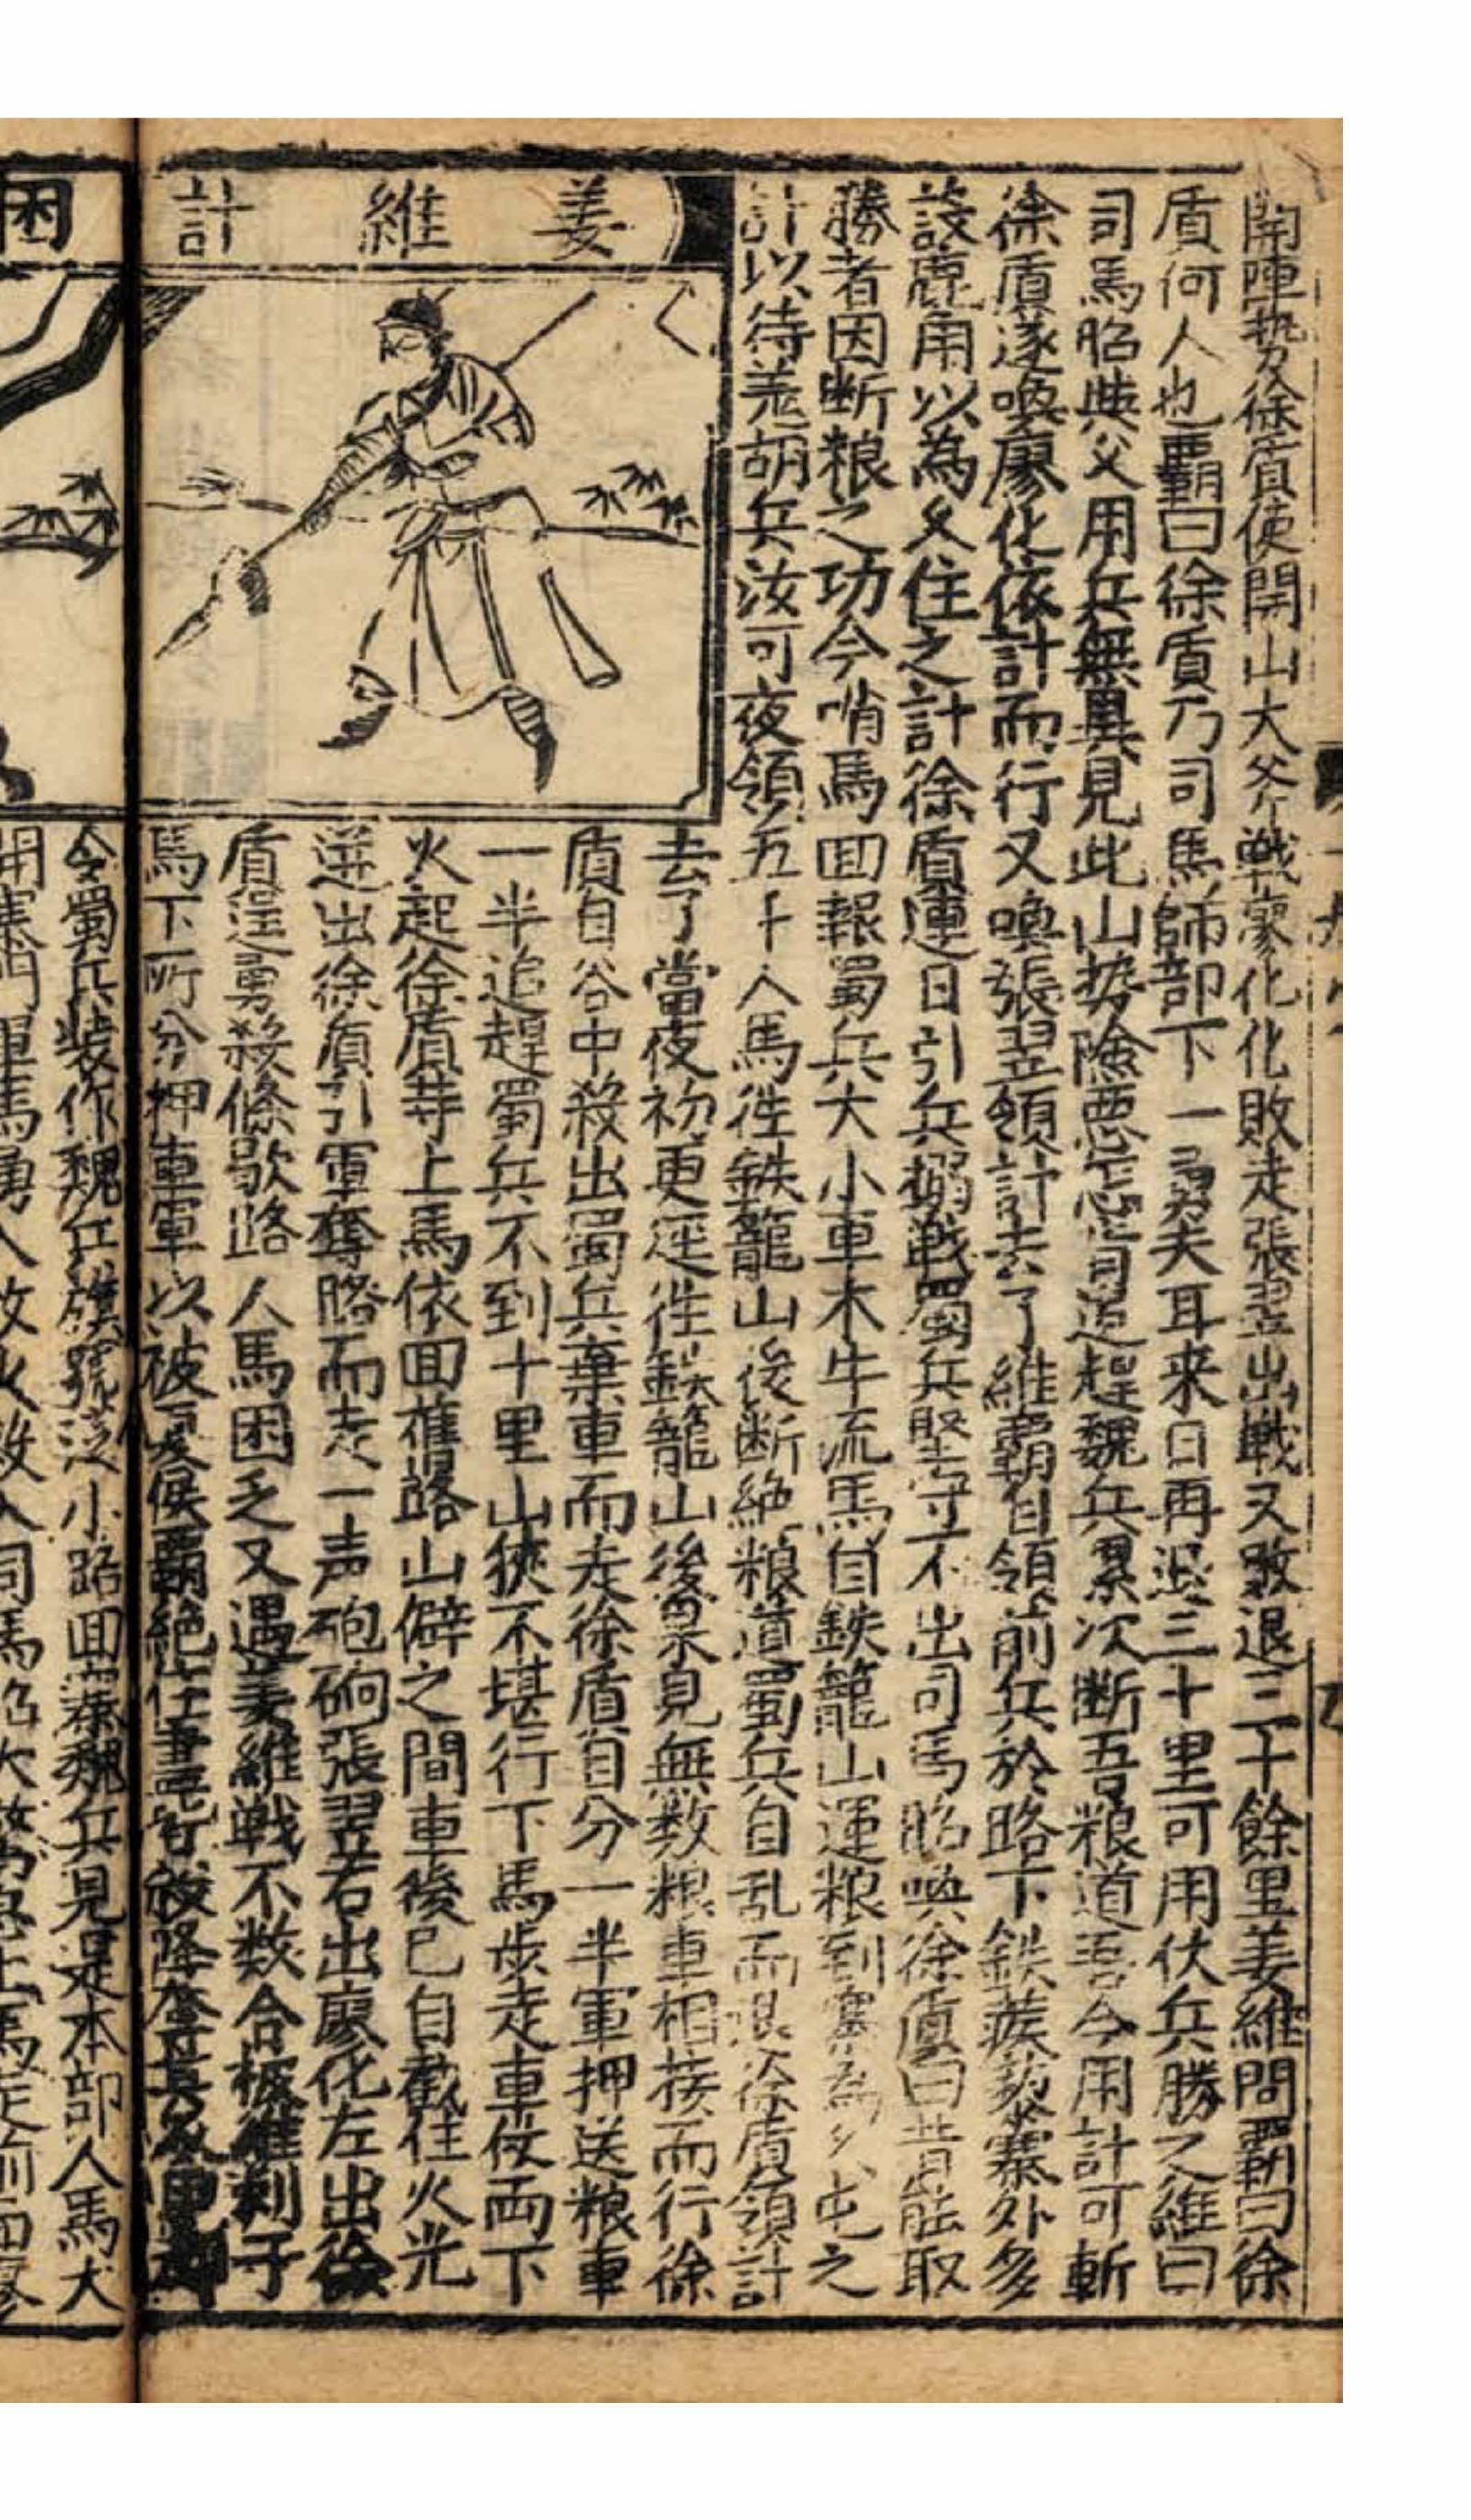 開陣勢徐質使開山大斧戦寥化化敗走張翌出戦又敗退三十餘里姜維問覇曰徐
質何人也覇曰徐質乃司馬師部下一勇夫耳来日再退三十里可用伏兵勝之維曰
司馬昭與父用兵無異見此山势險悪怎肯追趕魏兵累次断吾粮道吾今用計可斬
徐質遂喚廖化依計而行又喚張翌領計去了維覇自領前兵於路下鉄蒺藜寨外多
設鹿角以為久住之計徐質連日引兵搦戦蜀兵堅守不出司馬昭喚徐質曰昔日能取
勝者因断粮之功今哨馬囬報蜀兵大小車木牛流馬自鉄籠山運粮到寨為久屯之
計以待羗胡兵汝可夜領五千人馬徃鉄籠山後断絶粮道蜀兵自乱而退徐質領計
姜維計
去了當夜初更逕徃鉄籠山後果見無数粮車相接而行徐
質自谷中殺出蜀兵棄車而走徐質自分一半軍押送粮車
一半追趕蜀兵不到十里山狹不堪行下馬步走車仗両下
火起徐質等上馬依囬舊路山僻之間車後已自截住火光
迸出徐質引軍奪路而走一声砲响張翌右出廖化左出徐
質逞勇殺條歇路人馬困乏又遇姜維戦不数合被維刺于
馬下所分押車軍以被夏侯覇絶住盡皆投降奪其
困
令蜀兵装作魏兵旗號從小路囬寨魏兵見是本部人馬大